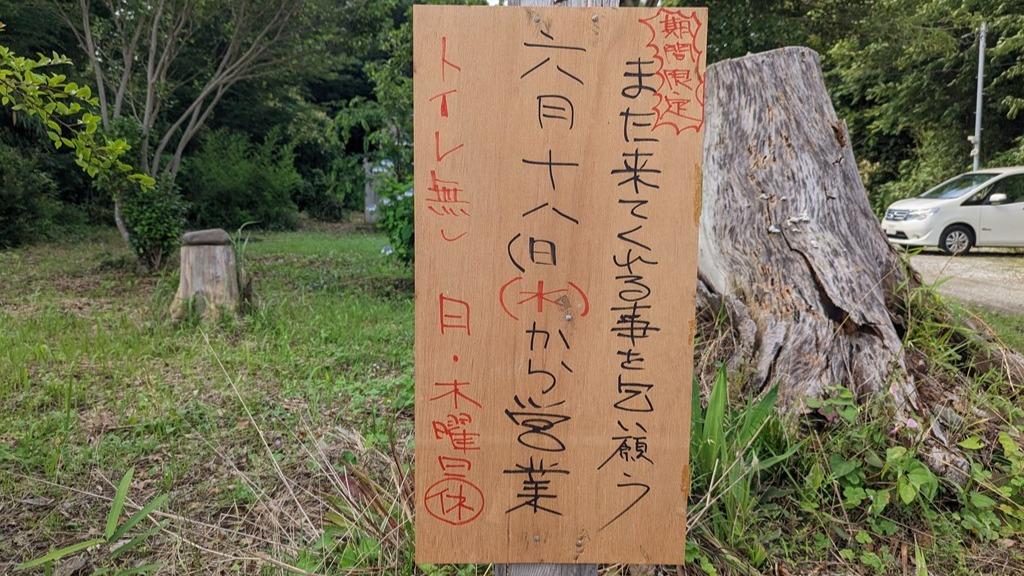 期間限定
また来てくれる事を乞い願う
六月十八(日(水)から営業
トイレ無し 日・木曜日㊡